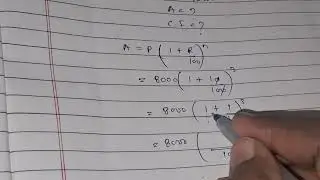 A = ?
C.I = ?
A = P ( 1 + R/100 )^n
= 8000 ( 1 + 10/100 )^n
= 8000 ( 1 + 1
= 8000 (